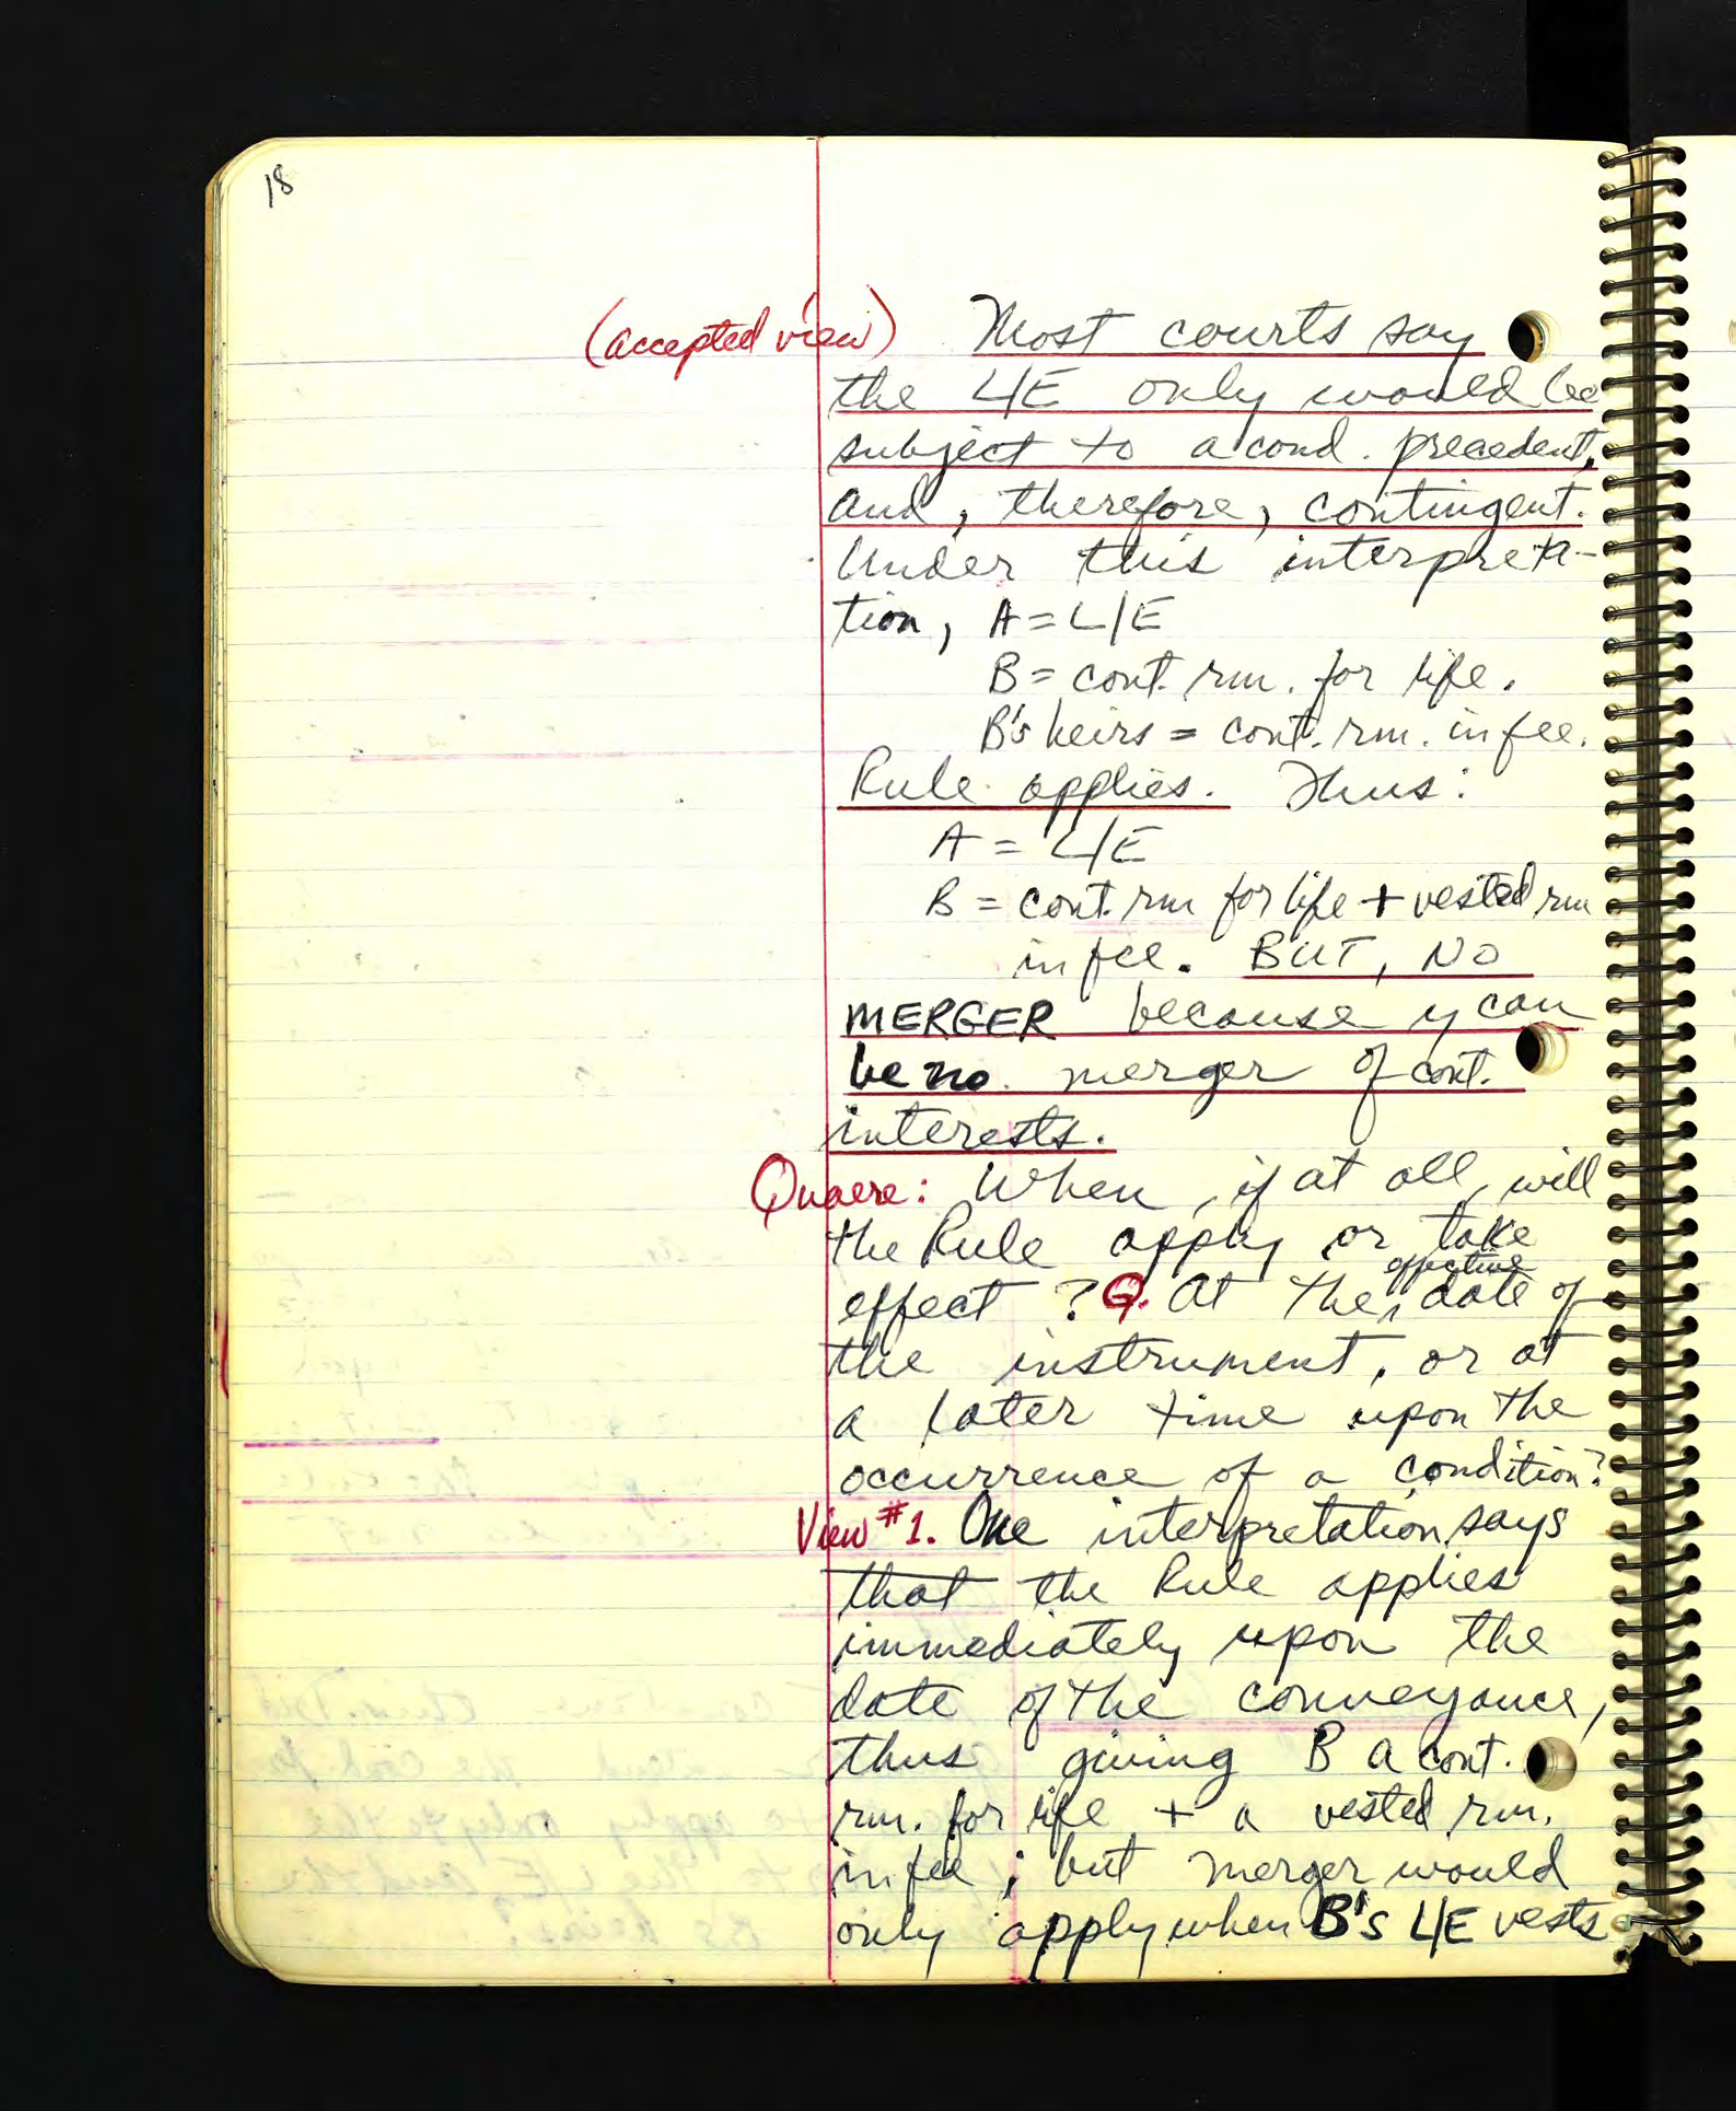 18
(accepted view) Most courts say
the L/E only would be
subject to a cond. precedent,
and, therefore, contingent.
Under this interpreta-
tion, A = L/E
B = cont. rm. for life.
B's heirs = cont. rm. in fee.
Rule applies. Thus:
A = L/E
B = cont. rm for life + vested rm
in fee. BUT, NO
MERGER because y can
be no merger of cont.
interests.
Quaere: When, if at all, will
the Rule apply or take
effect? Q. At the effective date of
the instrument, or at
a later time upon the
occurrence of a condition?
View #1. One interpretation says
that the Rule applies
immediately upon the
date of the conveyance,
thus giving B a cont.
rm. for life + a vested rm.
in fee; but merger would
only apply when B's L/E vests